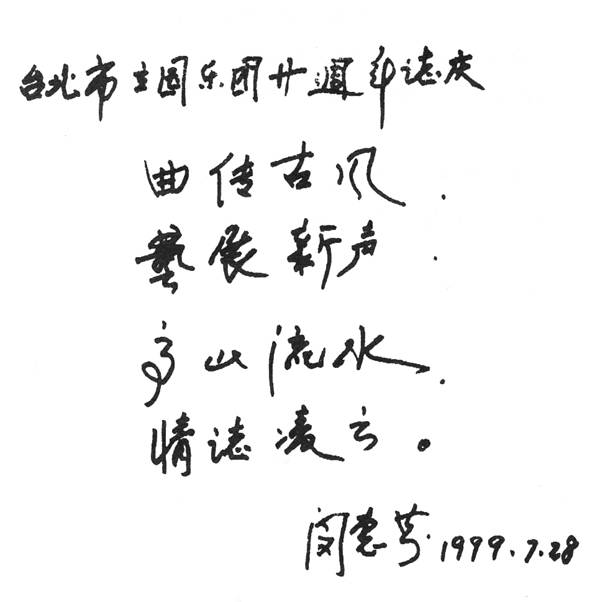 台北市立国乐团廿週年誌庆
曲传古风.
藝展新声.
高山流水.
情誌凌云。
闵惠芬.1999.7.28